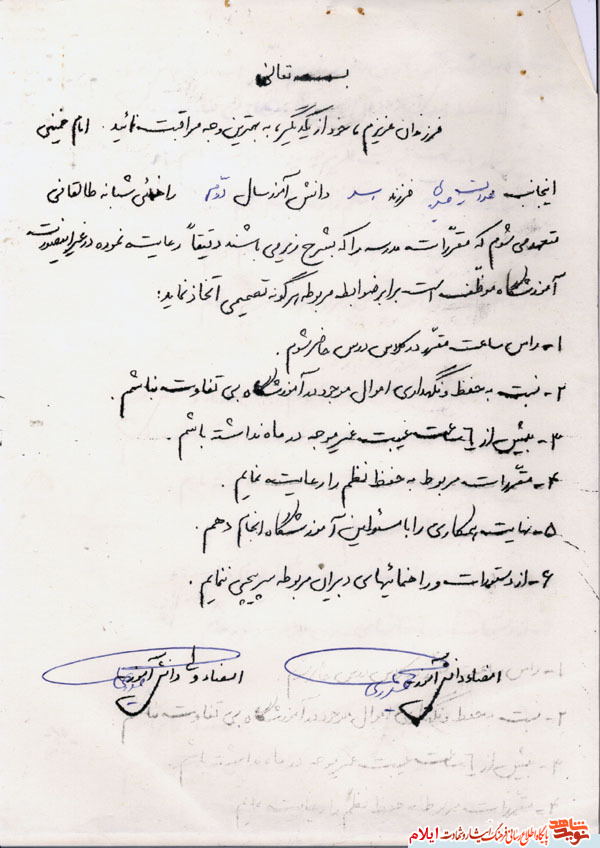 بسمه تعالی
فرزندان عزیزم، خود از یکدیگر، به بهترین وجه مراقبت نمائید. امام خمینی
اینجانب فرزند دانش آموز سال دوم راهنمائی شبانه طالقانی
متعهد می شوم که مقررات مدرسه را که بشرح زیر می باشند دقیقاً رعایت نموده در غیر اینصورت
آموزشگاه موظف است برابر ضوابط مربوطه هرگونه تصمیمی اتخاذ نماید:
۱- راس ساعت مقرر در کلاس درس حاضر شوم.
۲- نسبت به حفظ و نگهداری اموال موجود در آموزشگاه بی تفاوت نباشم.
۳- بیش از ساعت غیبت غیر موجه در ماه نداشته باشم.
۴- مقررات مربوط به حفظ نظم را رعایت نمایم.
۵- نهایت همکاری را با مسئولین آموزشگاه انجام دهم.
۶- از دستورات و راهنمائیهای دبیران مربوطه سرپیچی ننمایم.
امضاء دانش آموز امضاء ولی دانش آموز
نوید شاهد پایگاه اطلاع رسانی فرهنگ ایثار و شهادت ایلام